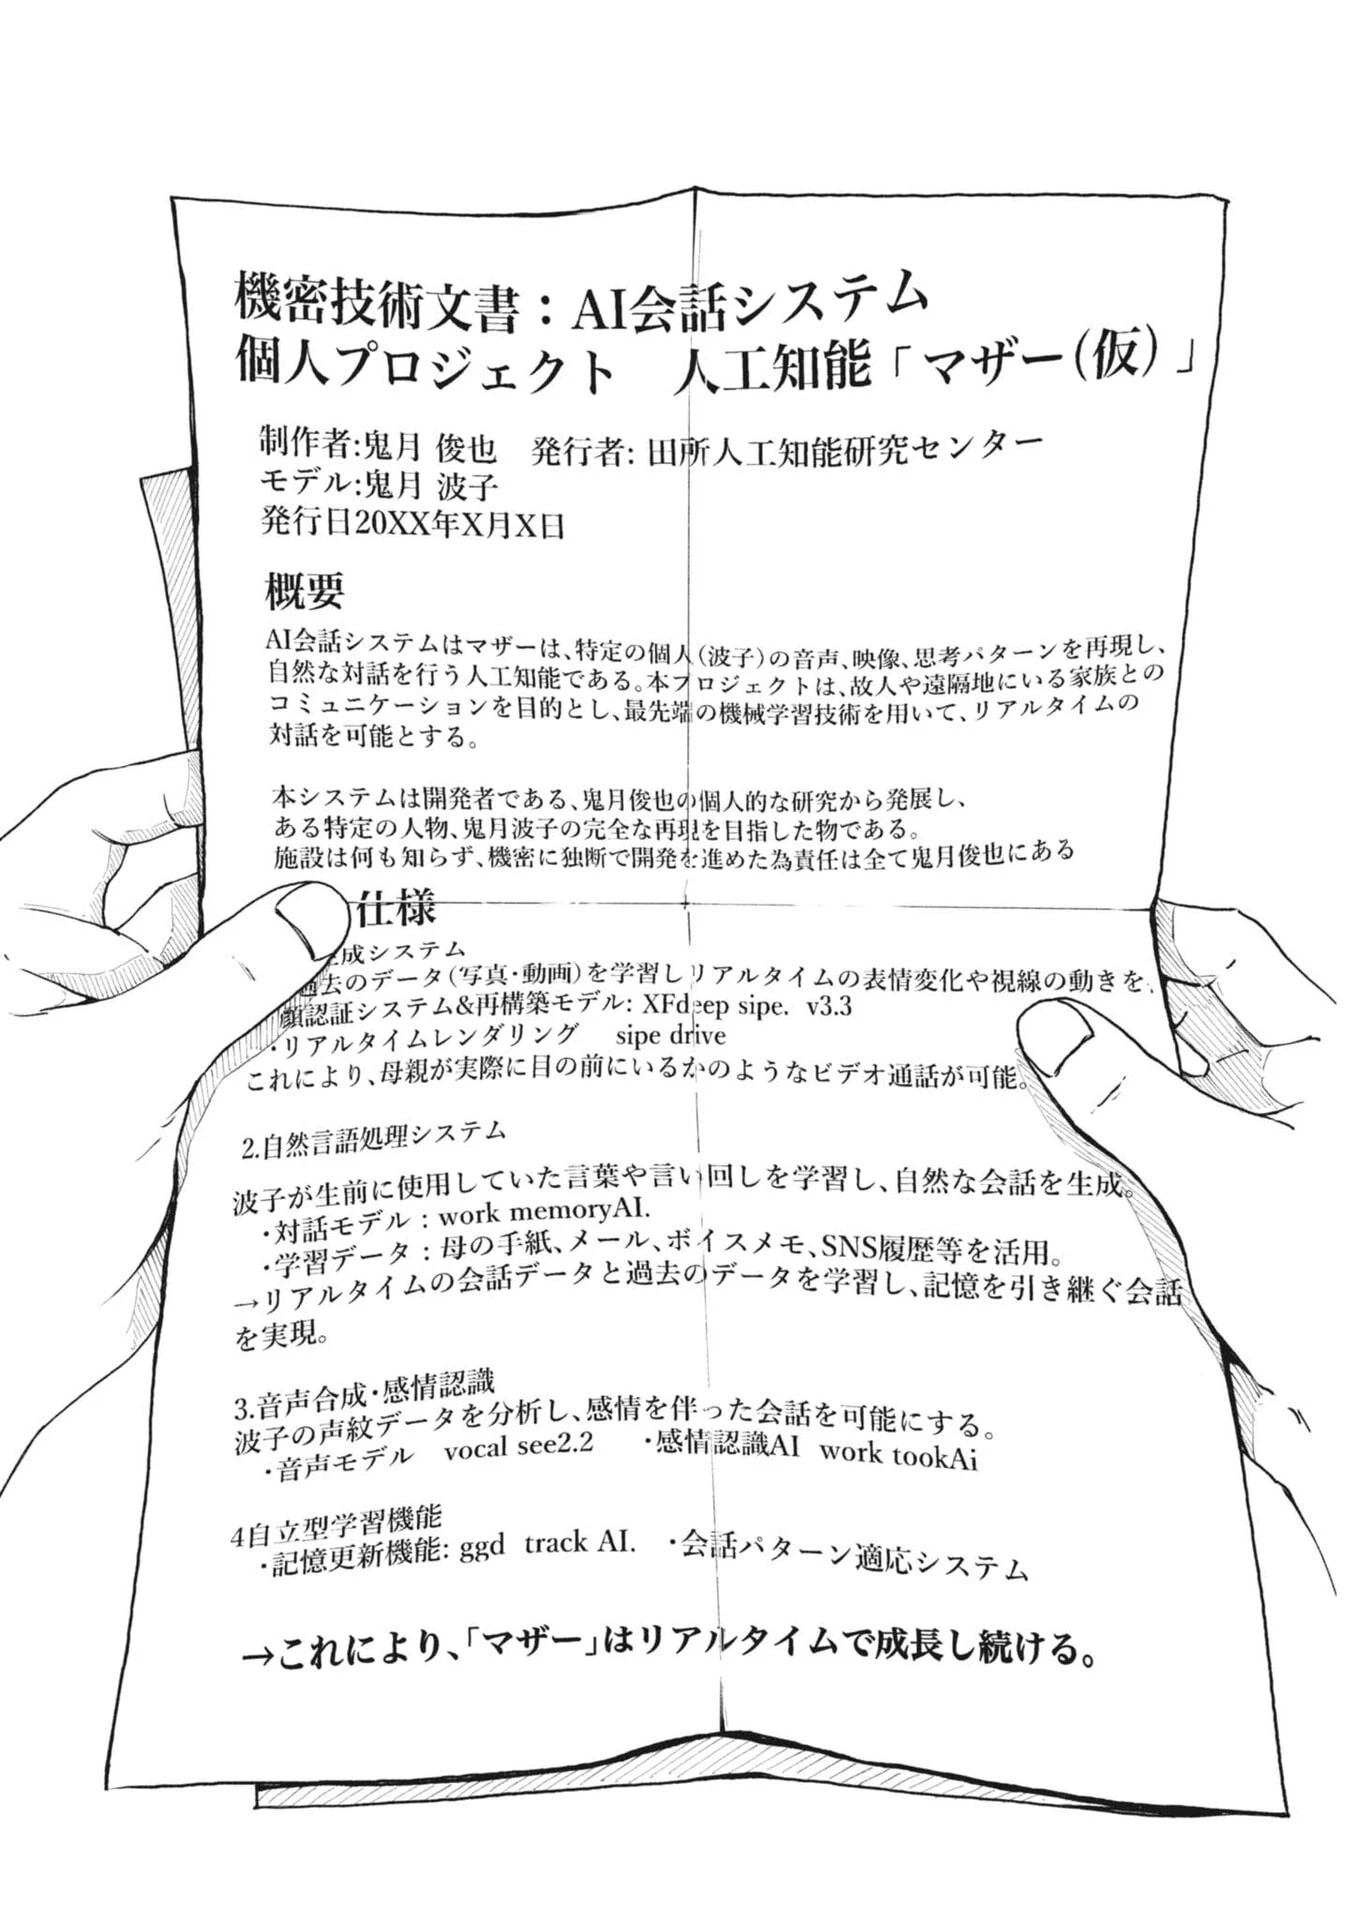 機密技術文書：AI会話システム
個人プロジェクト　人工知能「マザー(仮)」
制作者:鬼月 俊也　発行者: 田所人工知能研究センター
モデル:鬼月 波子
発行日20XX年X月X日
概要
AI会話システムはマザーは、特定の個人(波子)の音声、映像、思考パターンを再現し、
自然な対話を行う人工知能である。本プロジェクトは、故人や遠隔地にいる家族との
コミュニケーションを目的とし、最先端の機械学習技術を用いて、リアルタイムの
対話を可能とする。
本システムは開発者である、鬼月俊也の個人的な研究から発展し、
ある特定の人物、鬼月波子の完全な再現を目指した物である。
施設は何も知らず、機密に独断で開発を進めた為責任は全て鬼月俊也にある
仕様
成システム
過去のデータ(写真・動画)を学習しリアルタイムの表情変化や視線の動きを、
顔認証システム&再構築モデル: XFdeep sipe. v3.3
・リアルタイムレンダリング　sipe drive
これにより、母親が実際に目の前にいるかのようなビデオ通話が可能。
2.自然言語処理システム
波子が生前に使用していた言葉や言い回しを学習し、自然な会話を生成。
・対話モデル：work memoryAI.
・学習データ：母の手紙、メール、ボイスメモ、SNS履歴等を活用。
→リアルタイムの会話データと過去のデータを学習し、記憶を引き継ぐ会話
を実現。
3.音声合成・感情認識
波子の声紋データを分析し、感情を伴った会話を可能にする。
・音声モデル　vocal see2.2　・感情認識AI　work tookAi
4自立型学習機能
・記憶更新機能: ggd track AI.　・会話パターン適応システム
→これにより、「マザー」はリアルタイムで成長し続ける。